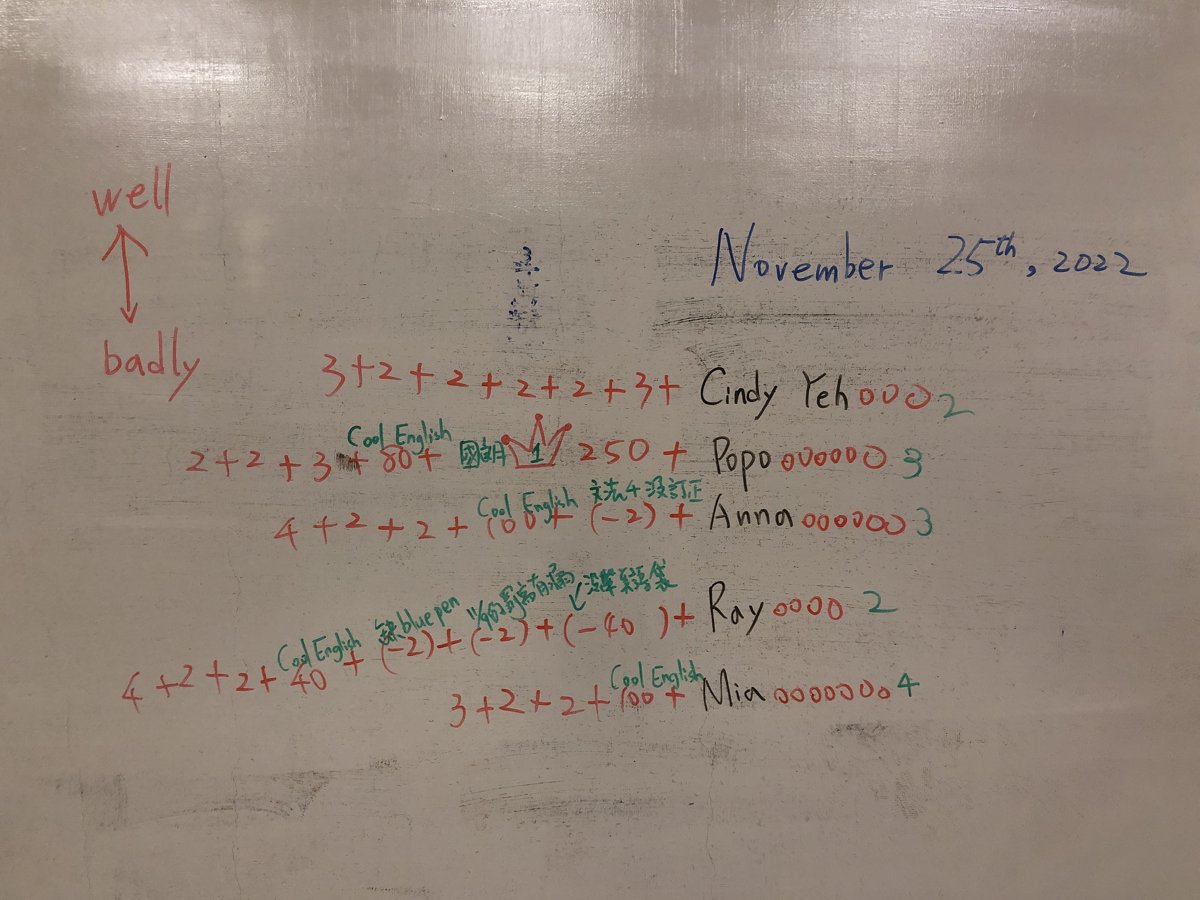 well
badly
November 25th, 2022
3+2+2+2+2+3+ Cindy Yeh ooo 2
Cool English
2+2+3+80+ 國朗 1 250 + Popo oooooo 3
Cool English 文法4 沒訂正
4+2+2+100+(-2)+ Anna oooooo 3
Cool English 缺blue pen
4+2+2+40+(-2)+(-2)+(-40)+ Ray oooo 2
Cool English
3+2+2+100+ Mia ooooooo 4